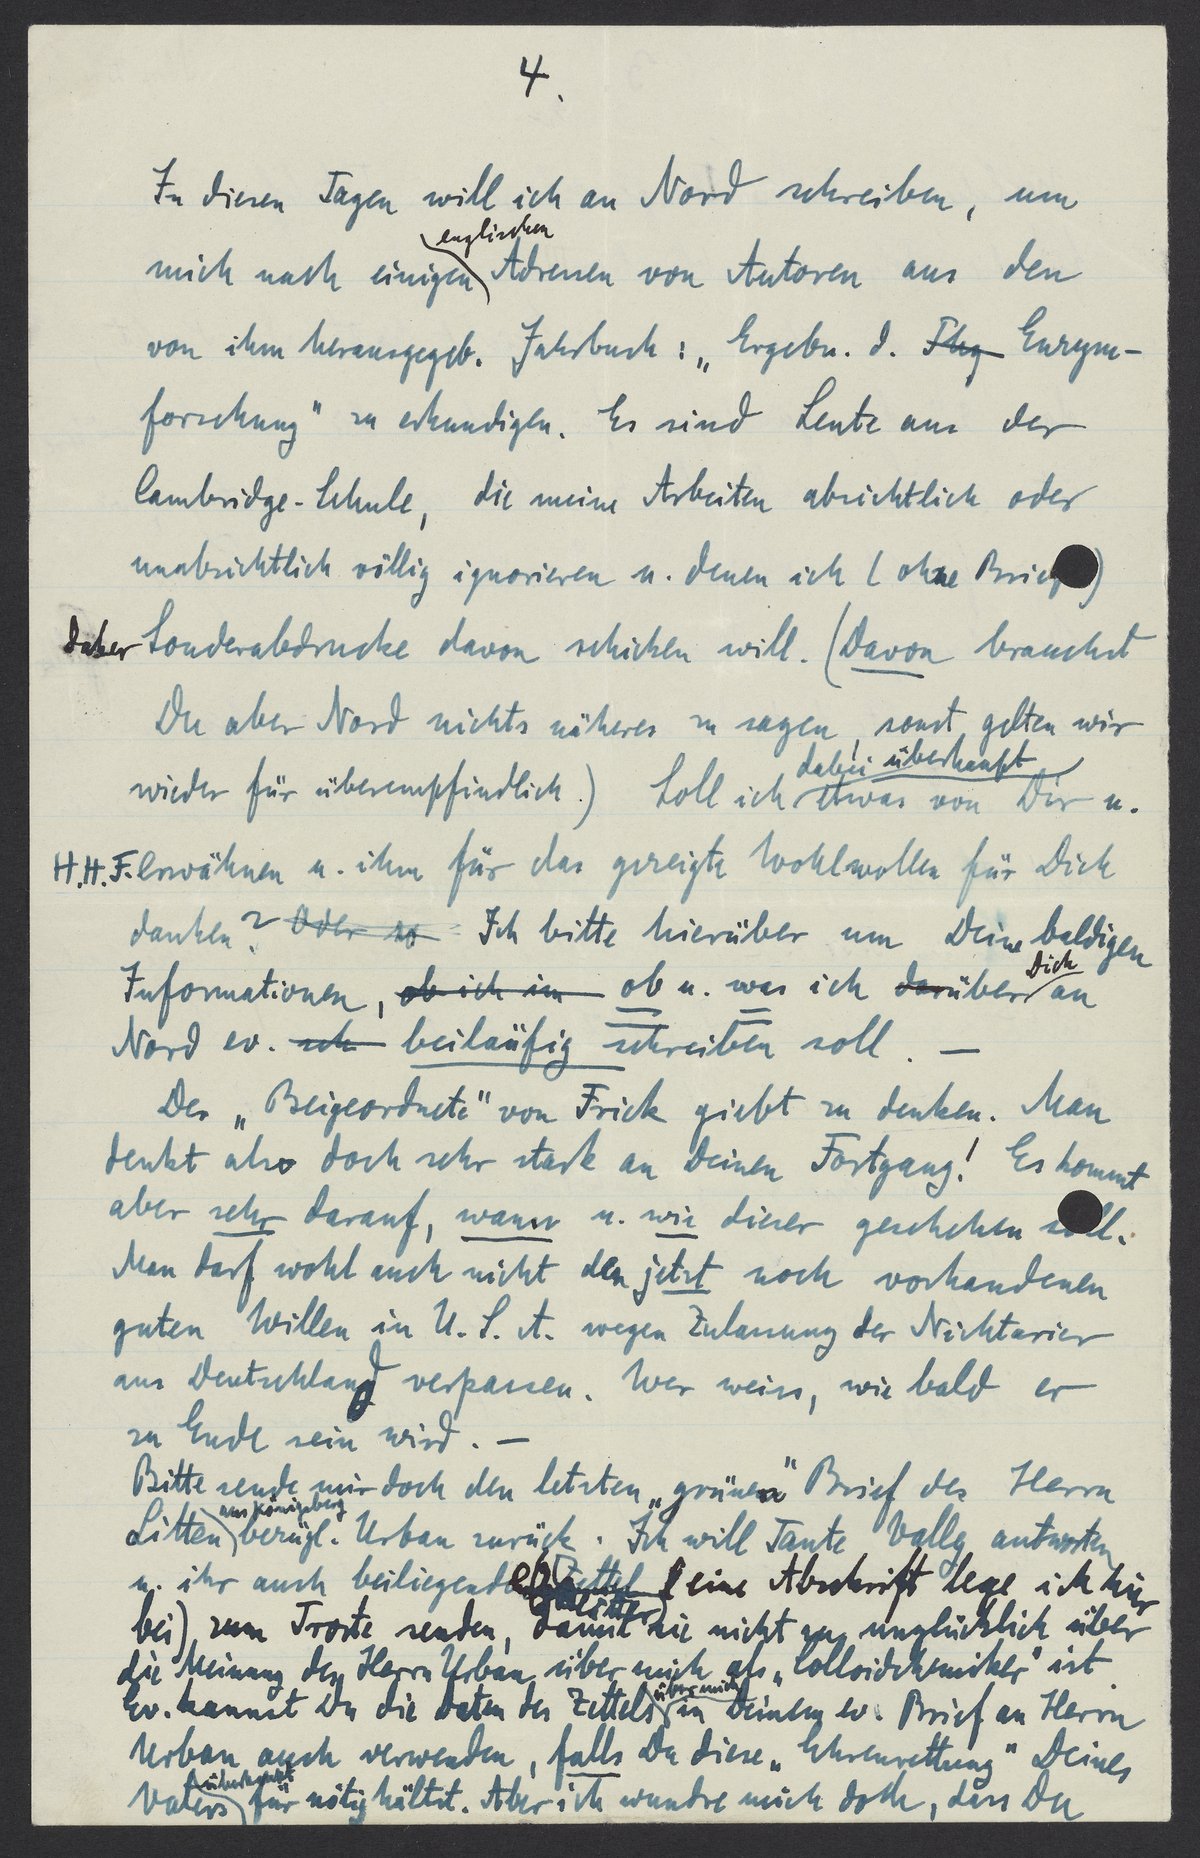 4.
In diesen Tagen will ich an Nord schreiben, um
englischen
mich nach einigen Adressen von Autoren aus den
von ihm herausgegeb. Jahrbuch: „Ergebn. d. Enzym-
forschung" zu erkundigen. Es sind Leute aus der
Cambridge-Schule, die meine Arbeiten absichtlich oder
unabsichtlich völlig ignorieren u. denen ich (ohne Brief)
daher Sonderabdrucke davon schicken will. (Davon brauchst
Du aber Nord nichts näheres zu sagen, sonst gelten wir
dabei überhaupt
wieder für überempfindlich.) Soll ich etwas von Dir u.
H.H.F. erwähnen u. ihm für das gezeigte Wohlwollen für Dich
danken? Oder so Ich bitte hierüber um Deine baldigen
Dich
Informationen, ob ich im ob u. was ich darüber an
Nord ev. sch beiläufig schreiben soll. —
Der „Beigeordnete" von Frick giebt zu denken. Man
denkt also doch sehr stark an Deinen Fortgang! Es kommt
aber sehr darauf, wann u. wie dieser geschehen soll.
Man darf wohl auch nicht den jetzt noch vorhandenen
guten Willen in U.S.A. wegen Zulassung der Nichtarier
aus Deutschland verpassen. Wer weiss, wie bald er
zu Ende sein wird. —
Bitte sende mir doch den letzten „grünen" Brief des Herrn
aus Königsberg
Litten bezügl. Urban zurück. Ich will Tante Vally antworten
u. ihr auch beiliegenden Zettel (eine Abschrift lege ich hier
bei) zum Troste senden, damit sie nicht zu unglücklich über
die Meinung des Herrn Urban über mich als „Colloidchemiker" ist
über mich
Ev. kannst Du die Daten des Zettels in Deinem ev. Brief an Herrn
Urban auch verwenden, falls Du diese „Ehrenrettung" Deines
überhaupt
Vaters für nötig hältst. Aber ich wundre mich doch, dass Du